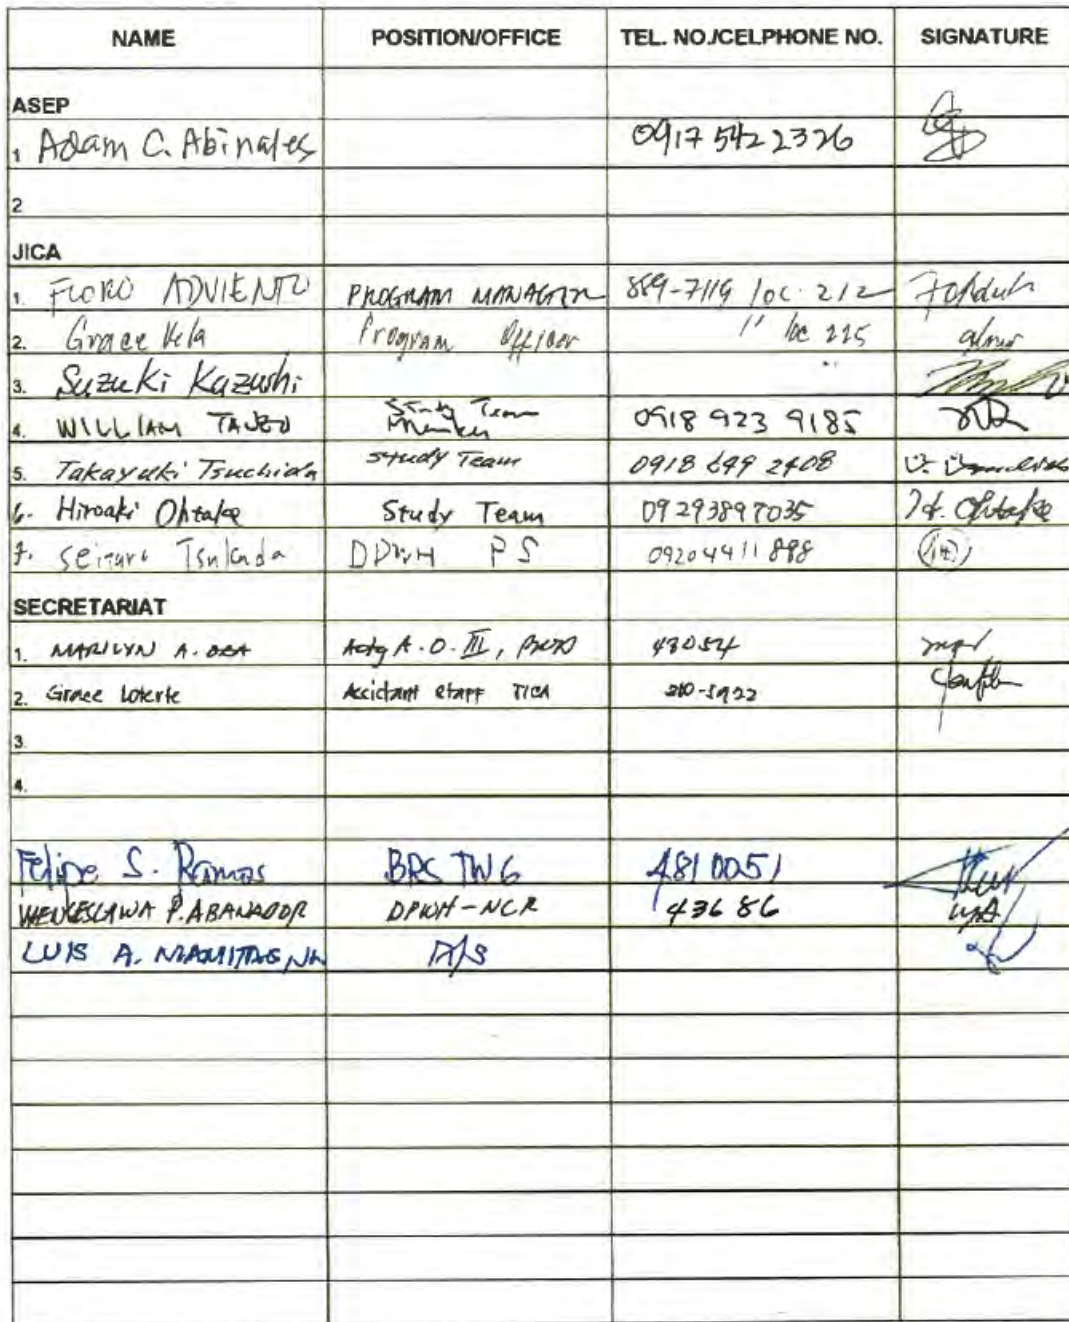 NAME POSITION/OFFICE TEL. NO./CELPHONE NO. SIGNATURE
ASEP
1 Adam C. Abinales 0917 542 2326
2
JICA
1. FLORO ADVIENTO PROGRAM MANAGER 889-7119 loc. 212
2. Grace Vela Program Officer " loc 225
3. Suzuki Kazushi
4. WILLIAM Study Team 0918 923 9185
5. Takayuki Tsuchida Study Team 0918 699 2408
6. Hiroaki Ohtake Study Team 09293897035 H. Ohtake
7. Tsukada DPWH PS 09204411888
SECRETARIAT
1. MARILYN A. Actg A.O. III, 43054
2. Grace Assistant Staff JICA
3.
4.
Felipe S. Ramos BRS TWG 4810051
WENCESLAWA P. ABANADOR DPWH-NCR 43686
LUIS A. A/S